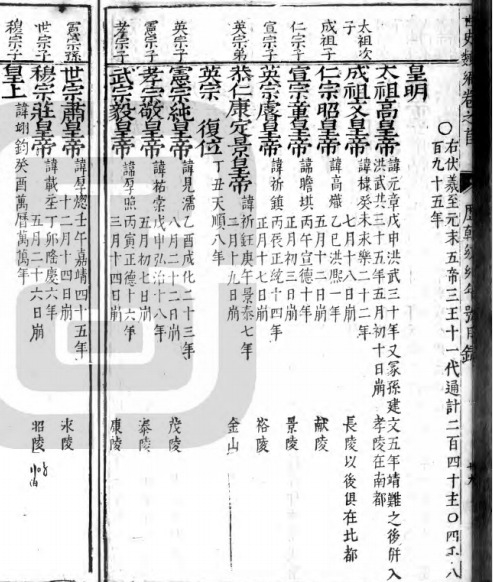 世史類編卷之首
歷朝紀年號目錄
○右伏羲至元末五帝三王十一代通計二百四十主○四千八
百九十五年
皇明
太祖高皇帝 諱元璋戊申洪武三十年又冡孫建文五年靖難之後倂入
洪武共三十五年五月初十日崩 孝陵在南都
太祖次子 成祖文皇帝 諱棣癸未永樂二十二年
七月十八日崩 長陵以後俱在北都
成祖子 仁宗昭皇帝 諱高熾乙巳洪熙一年
五月十二日崩 献陵
仁宗子 宣宗章皇帝 諱瞻基丙午宣德十年
正月初三日崩 景陵
宣宗子 英宗睿皇帝 諱祈鎮丙辰正統十四年
正月十七日崩 裕陵
英宗弟 恭仁康定景皇帝 諱祈鈺庚午景泰七年
二月十九日崩 金山
英宗 復位 丁丑天順八年
英宗子 憲宗純皇帝 諱見濡乙酉成化二十三年
八月二十二日崩 茂陵
憲宗子 孝宗敬皇帝 諱祐崇戊申弘治十八年
五月初七日崩 泰陵
孝宗子 武宗毅皇帝 諱厚照丙寅正德十六年
三月十四日崩 康陵
憲宗孫 世宗肅皇帝 諱厚熜壬午嘉靖四十五年
十二月十四日崩 永陵
世宗子 穆宗莊皇帝 諱載垕丁卯隆慶六年
五月二十六日崩 昭陵
穆宗子 皇上 諱翊鈞癸酉萬曆萬萬年